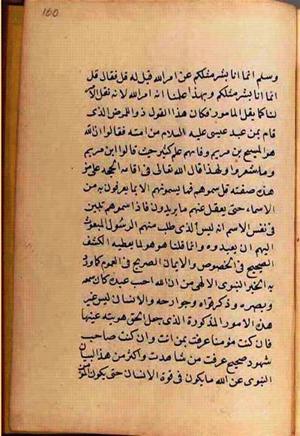 160
وسلم انما انا بشر مثلكم عن امر الله قيل له قل فقال قل
انما انا بشر مثلكم وبهذا علمنا انه امر الله لانه نقل الامر
لنا كما نقل المامور فكان هذا القول دواء للمرض الذى
قام بمن عبد عيسى عليه السلام من امته فقالوا ان الله
هو المسيح بن مريم وفاتهم علم كثير حيث قالوا ابن مريم
وما شعروا ولهذا قال الله تعالى فى اقامة الحجة على من
هذه صفته قل سموهم فما يسمونهم الا بما يعرفون به من
الاسماء حتى يعقل عنهم ما يريدون فاذا سموهم تبين
فى نفس الاسم انه ليس الذى طلب منهم الرسول المبعوث
اليهم ان يعبدوه وانما قلنا هو هو لما يعطيه الكشف
الصحيح فى الخصوص والايمان الصريح فى العموم كما ورد
به الخبر النبوى الالهى من ان الله احب عبده كان سمعه
وبصره وذكر قواه وجوارحه والانسان ليس غير
هذه الامور المذكورة الذى جعل الحق هويته عينها
فان كنت مؤمنا عرفت بمن انت وان كنت صاحب
شهود صحيح عرفت من شاهدت واكثر من هذا البيان
النبوى عن الله ما يكون فى قوة الانسان حتى يكون